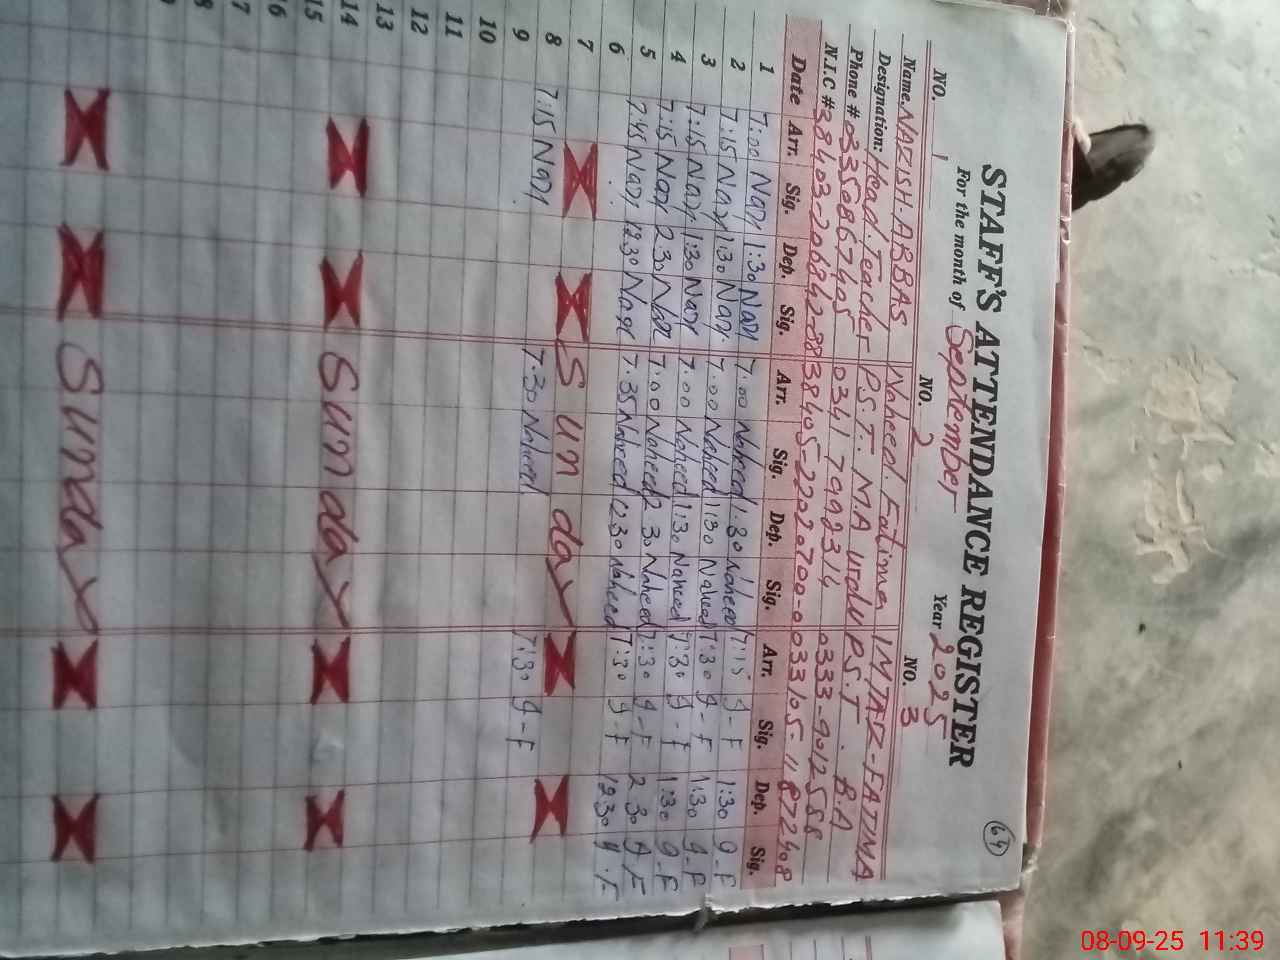 64
STAFF'S ATTENDANCE REGISTER
For the month of September Year 2025
NO. 1 NO. 2 NO. 3
Name. NAZISH. ABBAS Naheed. Fatima IMTAIZ-FATIMA
Designation: Head. Teacher P.S.T. MA Urdu P.S.T. B.A
Phone # 03350867495 0341 7992314 0333-9012588
N.I.C # 38403-2068842-8 38405-2202070-0 33105-1187240-8
Date Arr. Sig. Dep. Sig. Arr. Sig. Dep. Sig. Arr. Sig. Dep. Sig.
1 7:00 1:30 7.00 Naheed 1.30 Naheed 7:15 g-F 1:30 g-F
2 7:15 1:30 7.00 Naheed 1:30 Naheed 7:30 g-F 1:30 g-F
3 7:15 1:30 7.00 Naheed 1:30 Naheed 7:30 g-F 1:30 g-F
4 7:15 2:30 7.00 Naheed 2.30 Naheed 7:30 g-F 2.30 g F
5 7:45 12:30 7.35 Naheed 12.30 Naheed 7:30 g-F 12.30 g.F
6
7 Sunday
8 7:15 7.30 Naheed 7:30 g-F
9
10
11
12
13
14 Sunday
15
16
17
8
Sunday
08-09-25 11:39